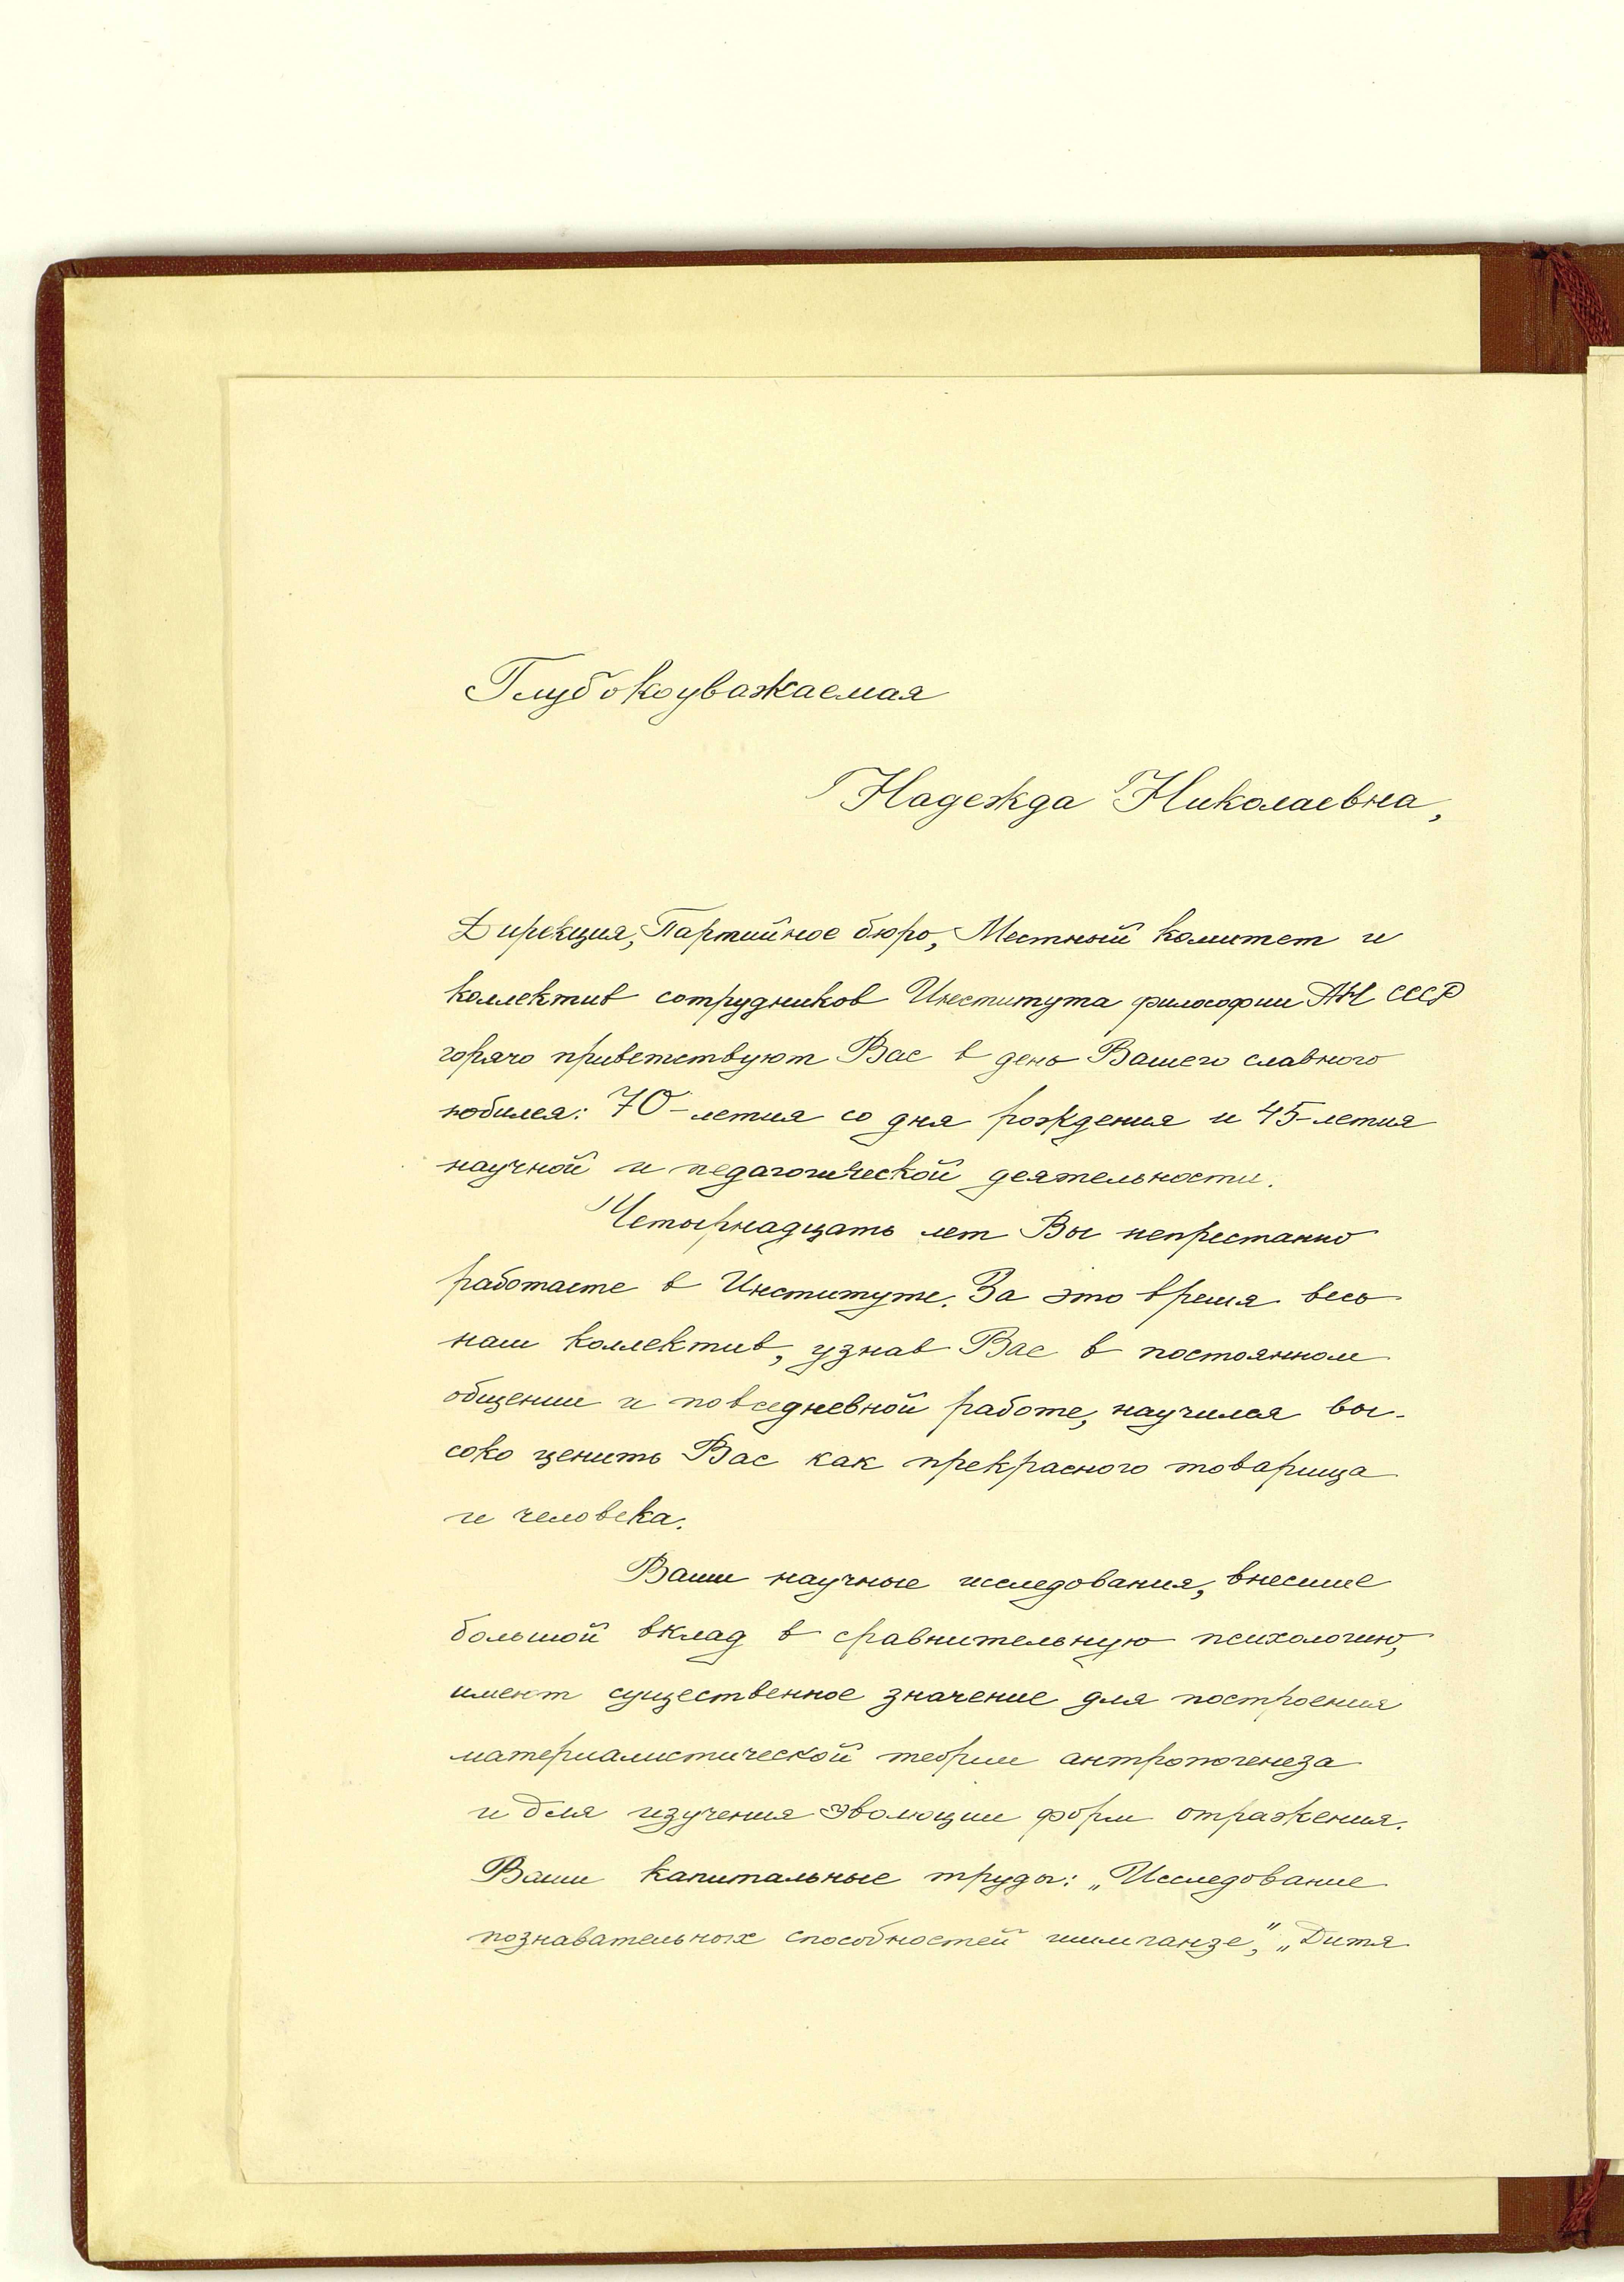 Глубокоуважаемая
Надежда Николаевна,
Дирекция, Партийное бюро, Местный комитет и
коллектив сотрудников Института философии АН СССР
горячо приветствуют Вас в день Вашего славного
юбилея: 70-летия со дня рождения и 45-летия
научной и педагогической деятельности.
Четырнадцать лет Вы непрестанно
работаете в Институте. За это время весь
наш коллектив, узнав Вас в постоянном
общении и повседневной работе, научился вы-
соко ценить Вас как прекрасного товарища
и человека.
Ваши научные исследования, внесшие
большой вклад в сравнительную психологию,
имеют существенное значение для построения
материалистической теории антропогенеза
и для изучения эволюции форм отражения.
Ваши капитальные труды: „Исследование
познавательных способностей шимпанзе”, „Дитя